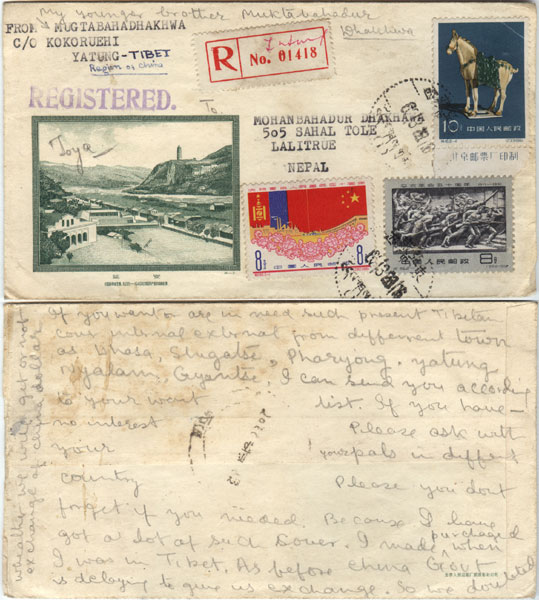 My younger brother Muktabahadur
Dhakhwa
FROM MUGTABAHADHAKHWA
C/O KOKORUEHI
YATUNG-TIBET
Region of China
R
No. 01418
REGISTERED.
To
MOHANBAHADUR DHAKHWA
505 SAHAL TOLE
LALITRUE
NEPAL
Toya
10分 中国人民邮政
北京邮票厂印制
8分 中国人民邮政 8分
中国人民邮政 8分
延安
If you want or are in need such present Tibetan
cover internal external from different town
as Lhasa, Shigatse, Pharyong, yatung
Nyalam, Gyantse, I can send you according
to your want list. If you have
no interest Please ask with
your yourpals in diffent
country Please you dont
forget if you needed. Because I have
got a lot of such Cover. I made, purchased when
I was in Tibet. As before China Govt
is delaying to give us exchange. So we doubted
whether we will get or not
exchange of china dollar